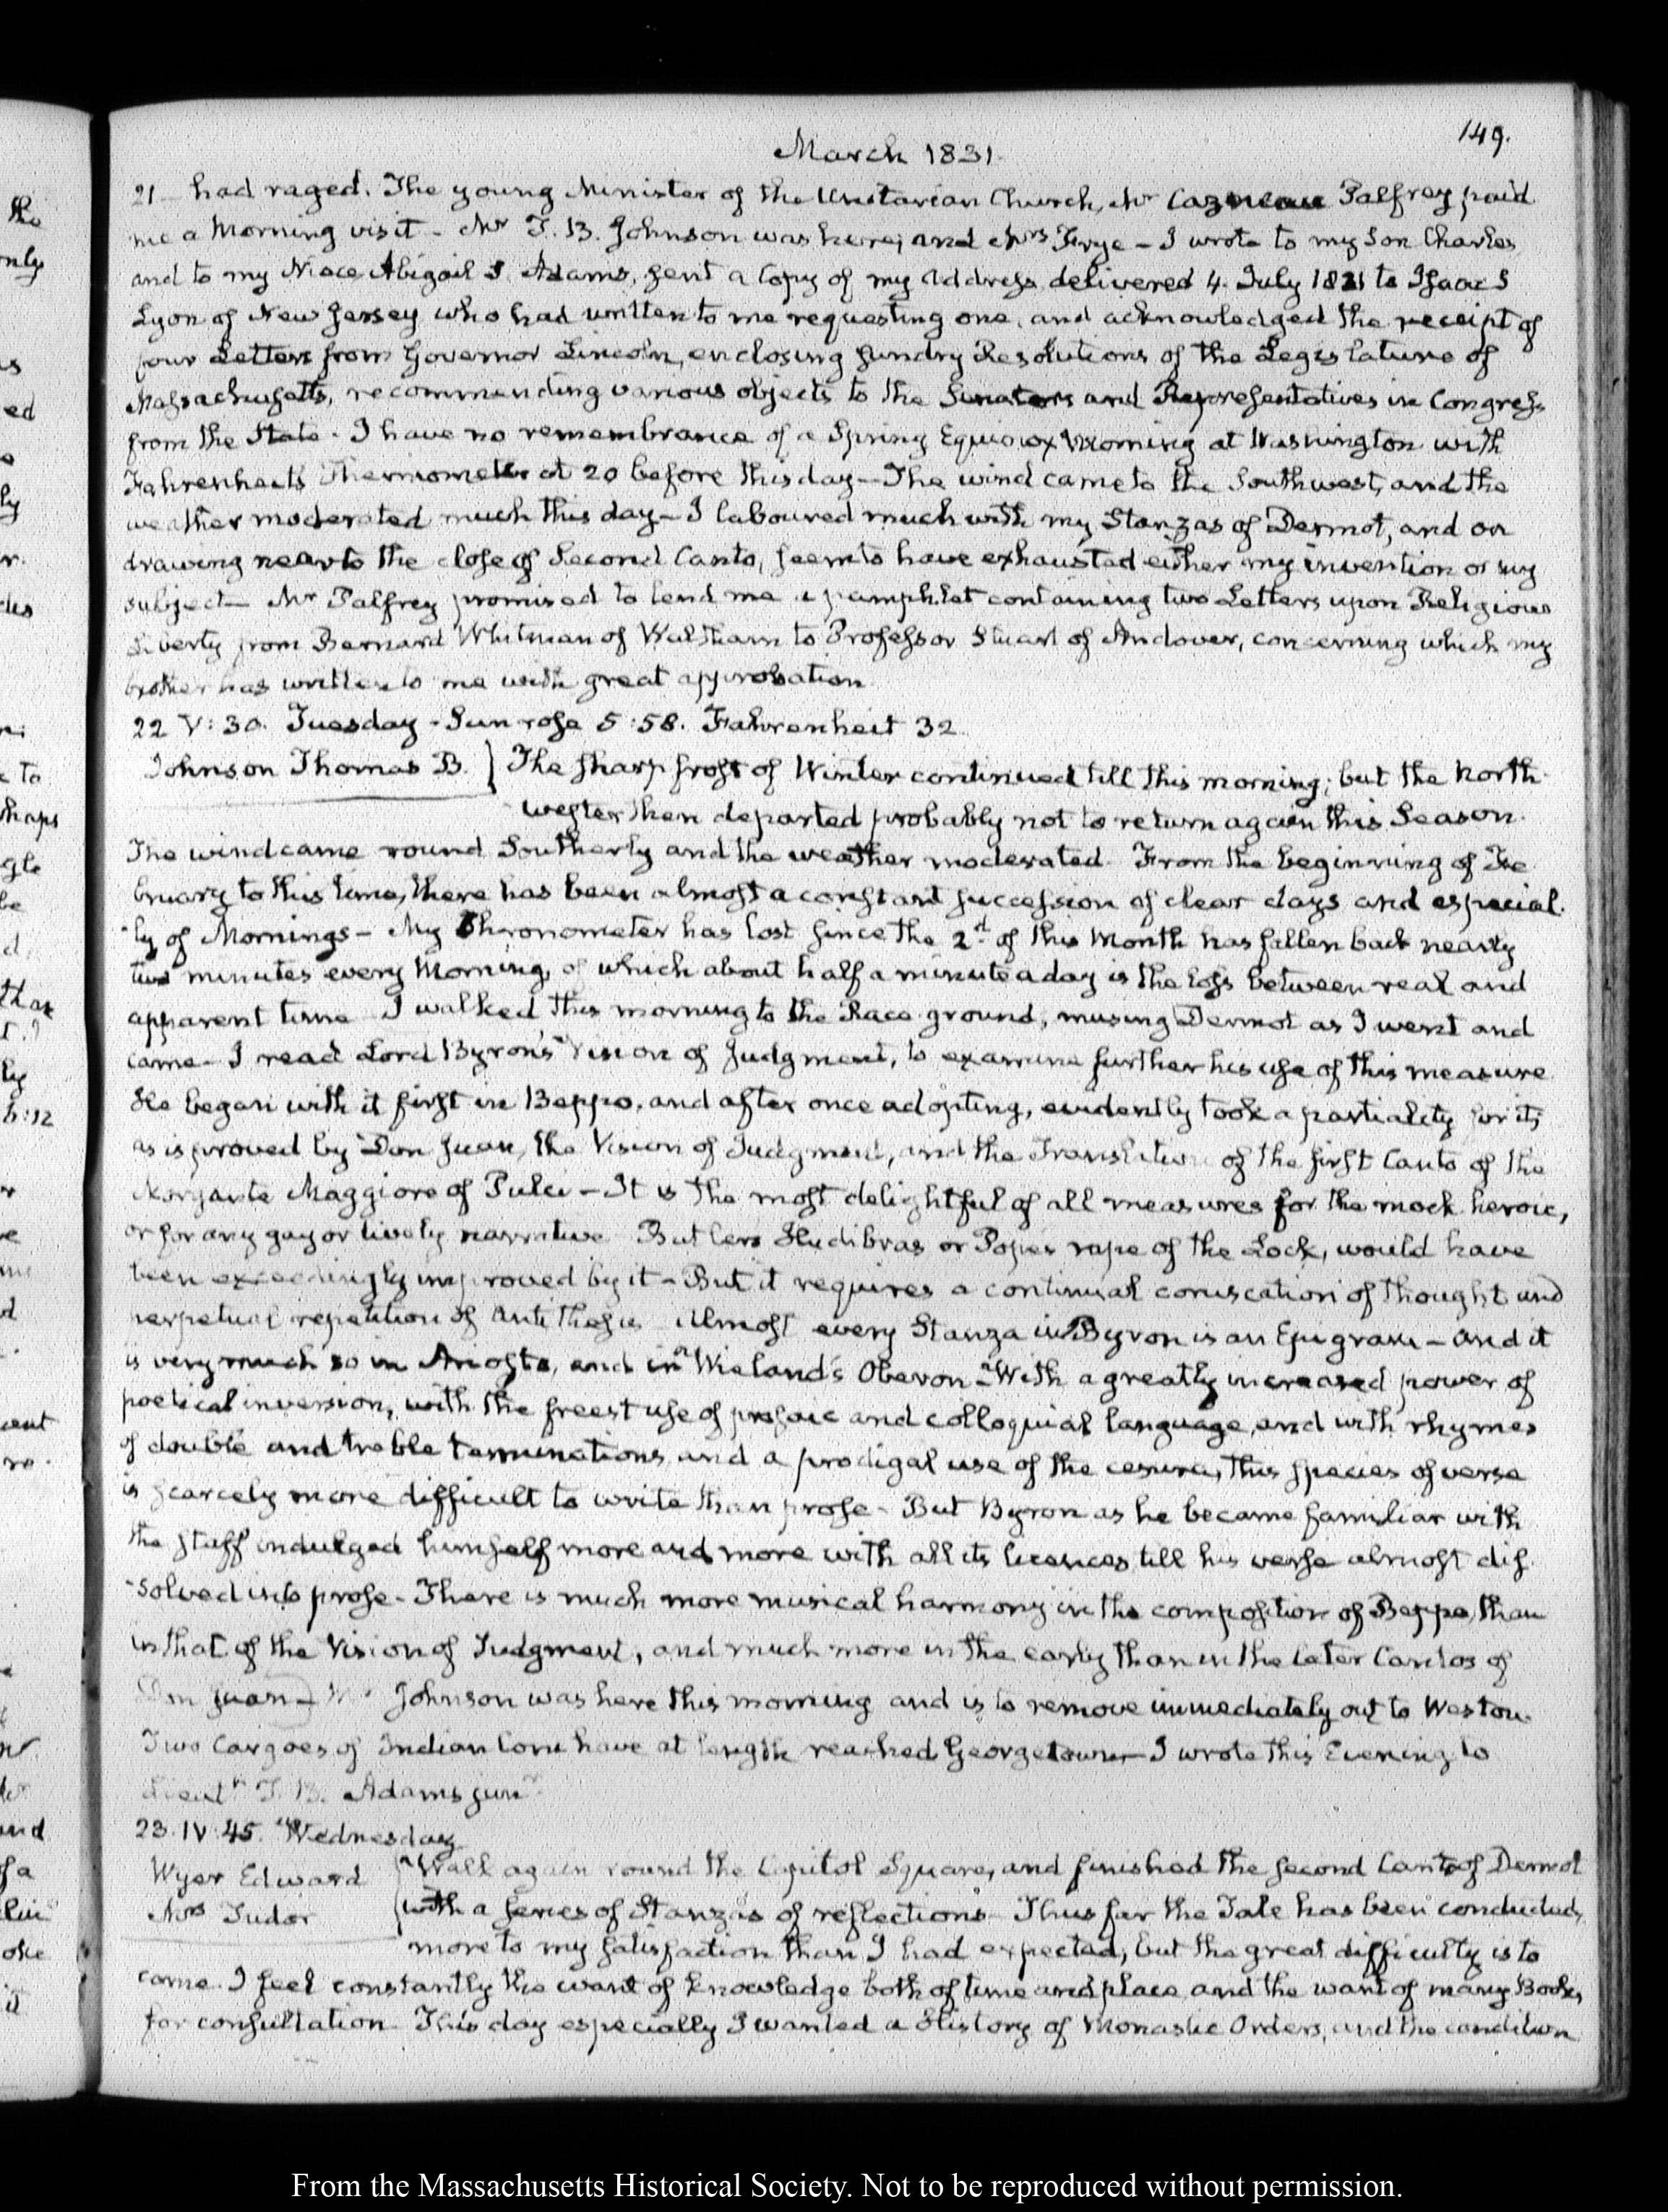 149.
March 1831.
21 — had raged. The young Minister of the Unitarian Church, Mr Cazneau Palfrey paid
me a Morning visit — Mr T. B. Johnson was here; and Mrs Frye — I wrote to my Son Charles
and to my Niece Abigail S. Adams, sent a Copy of my Address delivered 4. July 1821 to Isaac S
Lyon of New Jersey who had written to me requesting one, and acknowledged the receipt of
four Letters from Governor Lincoln, enclosing sundry Resolutions of the Legislature of
Massachusetts, recommending various objects to the Senators and Representatives in Congress
from the State. I have no remembrance of a Spring Equinox Morning at Washington with
Fahrenheits Thermometer at 20 before this day — The wind came to the Southwest, and the
weather moderated much this day — I laboured much with my Stanzas of Dermot, and on
drawing near to the close of Second Canto, seem to have exhausted either my invention or my
subject — Mr Palfrey promised to lend me a pamphlet containing two Letters upon Religious
Liberty from Bernard Whitman of Waltham to Professor Stuart of Andover, concerning which my
brother has written to me with great approbation
22 V: 30. Tuesday — Sun rose 5:58. Fahrenheit 32.
Johnson Thomas B. } The sharp frost of Winter continued till this morning; but the North-
wester then departed probably not to return again this Season.
The wind came round Southerly and the weather moderated. From the beginning of Fe
bruary to this time, there has been almost a constant succession of clear days and especial-
-ly of Mornings — My Chronometer has lost since the 2d of this Month has fallen back nearly
two minutes every Morning, of which about half a minute a day is the loss between real and
apparent time I walked this morning to the Race ground, musing Dermot as I went and
came — I read Lord Byron's Vision of Judgment, to examine further his use of this measure
He began with it first in Beppo, and after once adopting, evidently took a partiality for it;
as is proved by Don Juan, the Vision of Judgment, and the Translation of the first Canto of the
Morgante Maggiore of Pulci — It is the most delightful of all measures for the mock heroic,
or for any gay or lively narrative Butlers Hudibras or Popes rape of the Lock, would have
been exceedingly improved by it — But it requires a continual coruscation of thought and
perpetual repetition of antithesis Almost every Stanza in Byron is an Epigram — and it
is very much so in Ariosto, and in Wieland's Oberon — With a greatly increased power of
poetical inversion, with the freest use of prosaic and colloquial language, and with rhymes
of double and treble terminations, and a prodigal use of the cesura, this species of verse
is scarcely more difficult to write than prose — But Byron as he became familiar with
the staff indulged himself more and more with all its licences till his verse almost dis
-solved into prose — There is much more musical harmony in the composition of Beppo, than
in that of the Vision of Judgment, and much more in the early than in the later Cantos of
Don Juan — Mr Johnson was here this morning and is to remove immediately out to Weston
Two Cargoes of Indian Corn have at length reached Georgetown — I wrote this Evening to
Lieutt T. B. Adams junr
23. IV: 45. Wednesday
Wyer Edward } Walk again round the Capitol Square, and finished the second Canto of Dermot
Mrs Tudor with a series of Stanzas of reflections — Thus far the Tale has been conducted,
more to my satisfaction than I had expected, but the great difficulty is to
come. I feel constantly the want of knowledge both of time and place, and the want of many Books,
for consultation This day especially I wanted a History of Monastic Orders, and the condition
From the Massachusetts Historical Society. Not to be reproduced without permission.